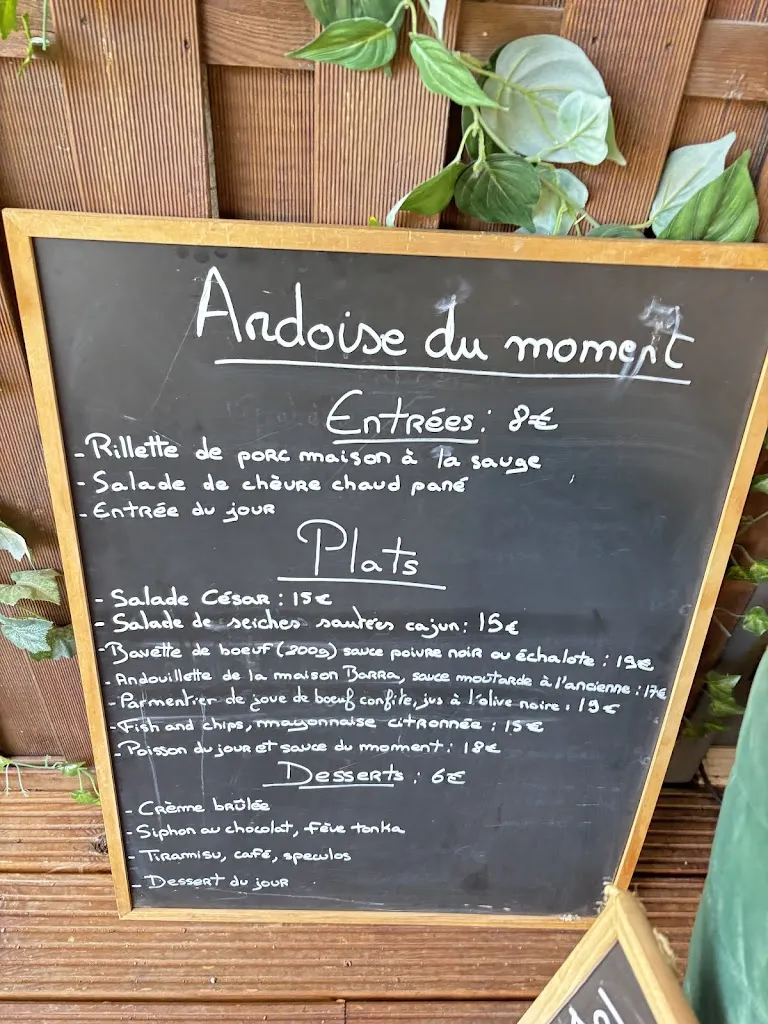 Ardoise du moment
Entrées : 8€
- Rillette de porc maison à la sauge
- Salade de chèvre chaud pané
- Entrée du jour
Plats
- Salade César : 15€
- Salade de seiches sautées cajun : 15€
- Bavette de boeuf (200g) sauce poivre noir ou échalote : 19€
- Andouillette de la maison Barra, sauce moutarde à l'ancienne : 17€
- Parmentier de joue de boeuf confite, jus à l'olive noire : 19€
- Fish and chips, mayonnaise citronnée : 15€
- Poisson du jour et sauce du moment : 18€
Desserts : 6€
- Crème brûlée
- Siphon au chocolat, fève tonka
- Tiramisu, café, speculos
- Dessert du jour